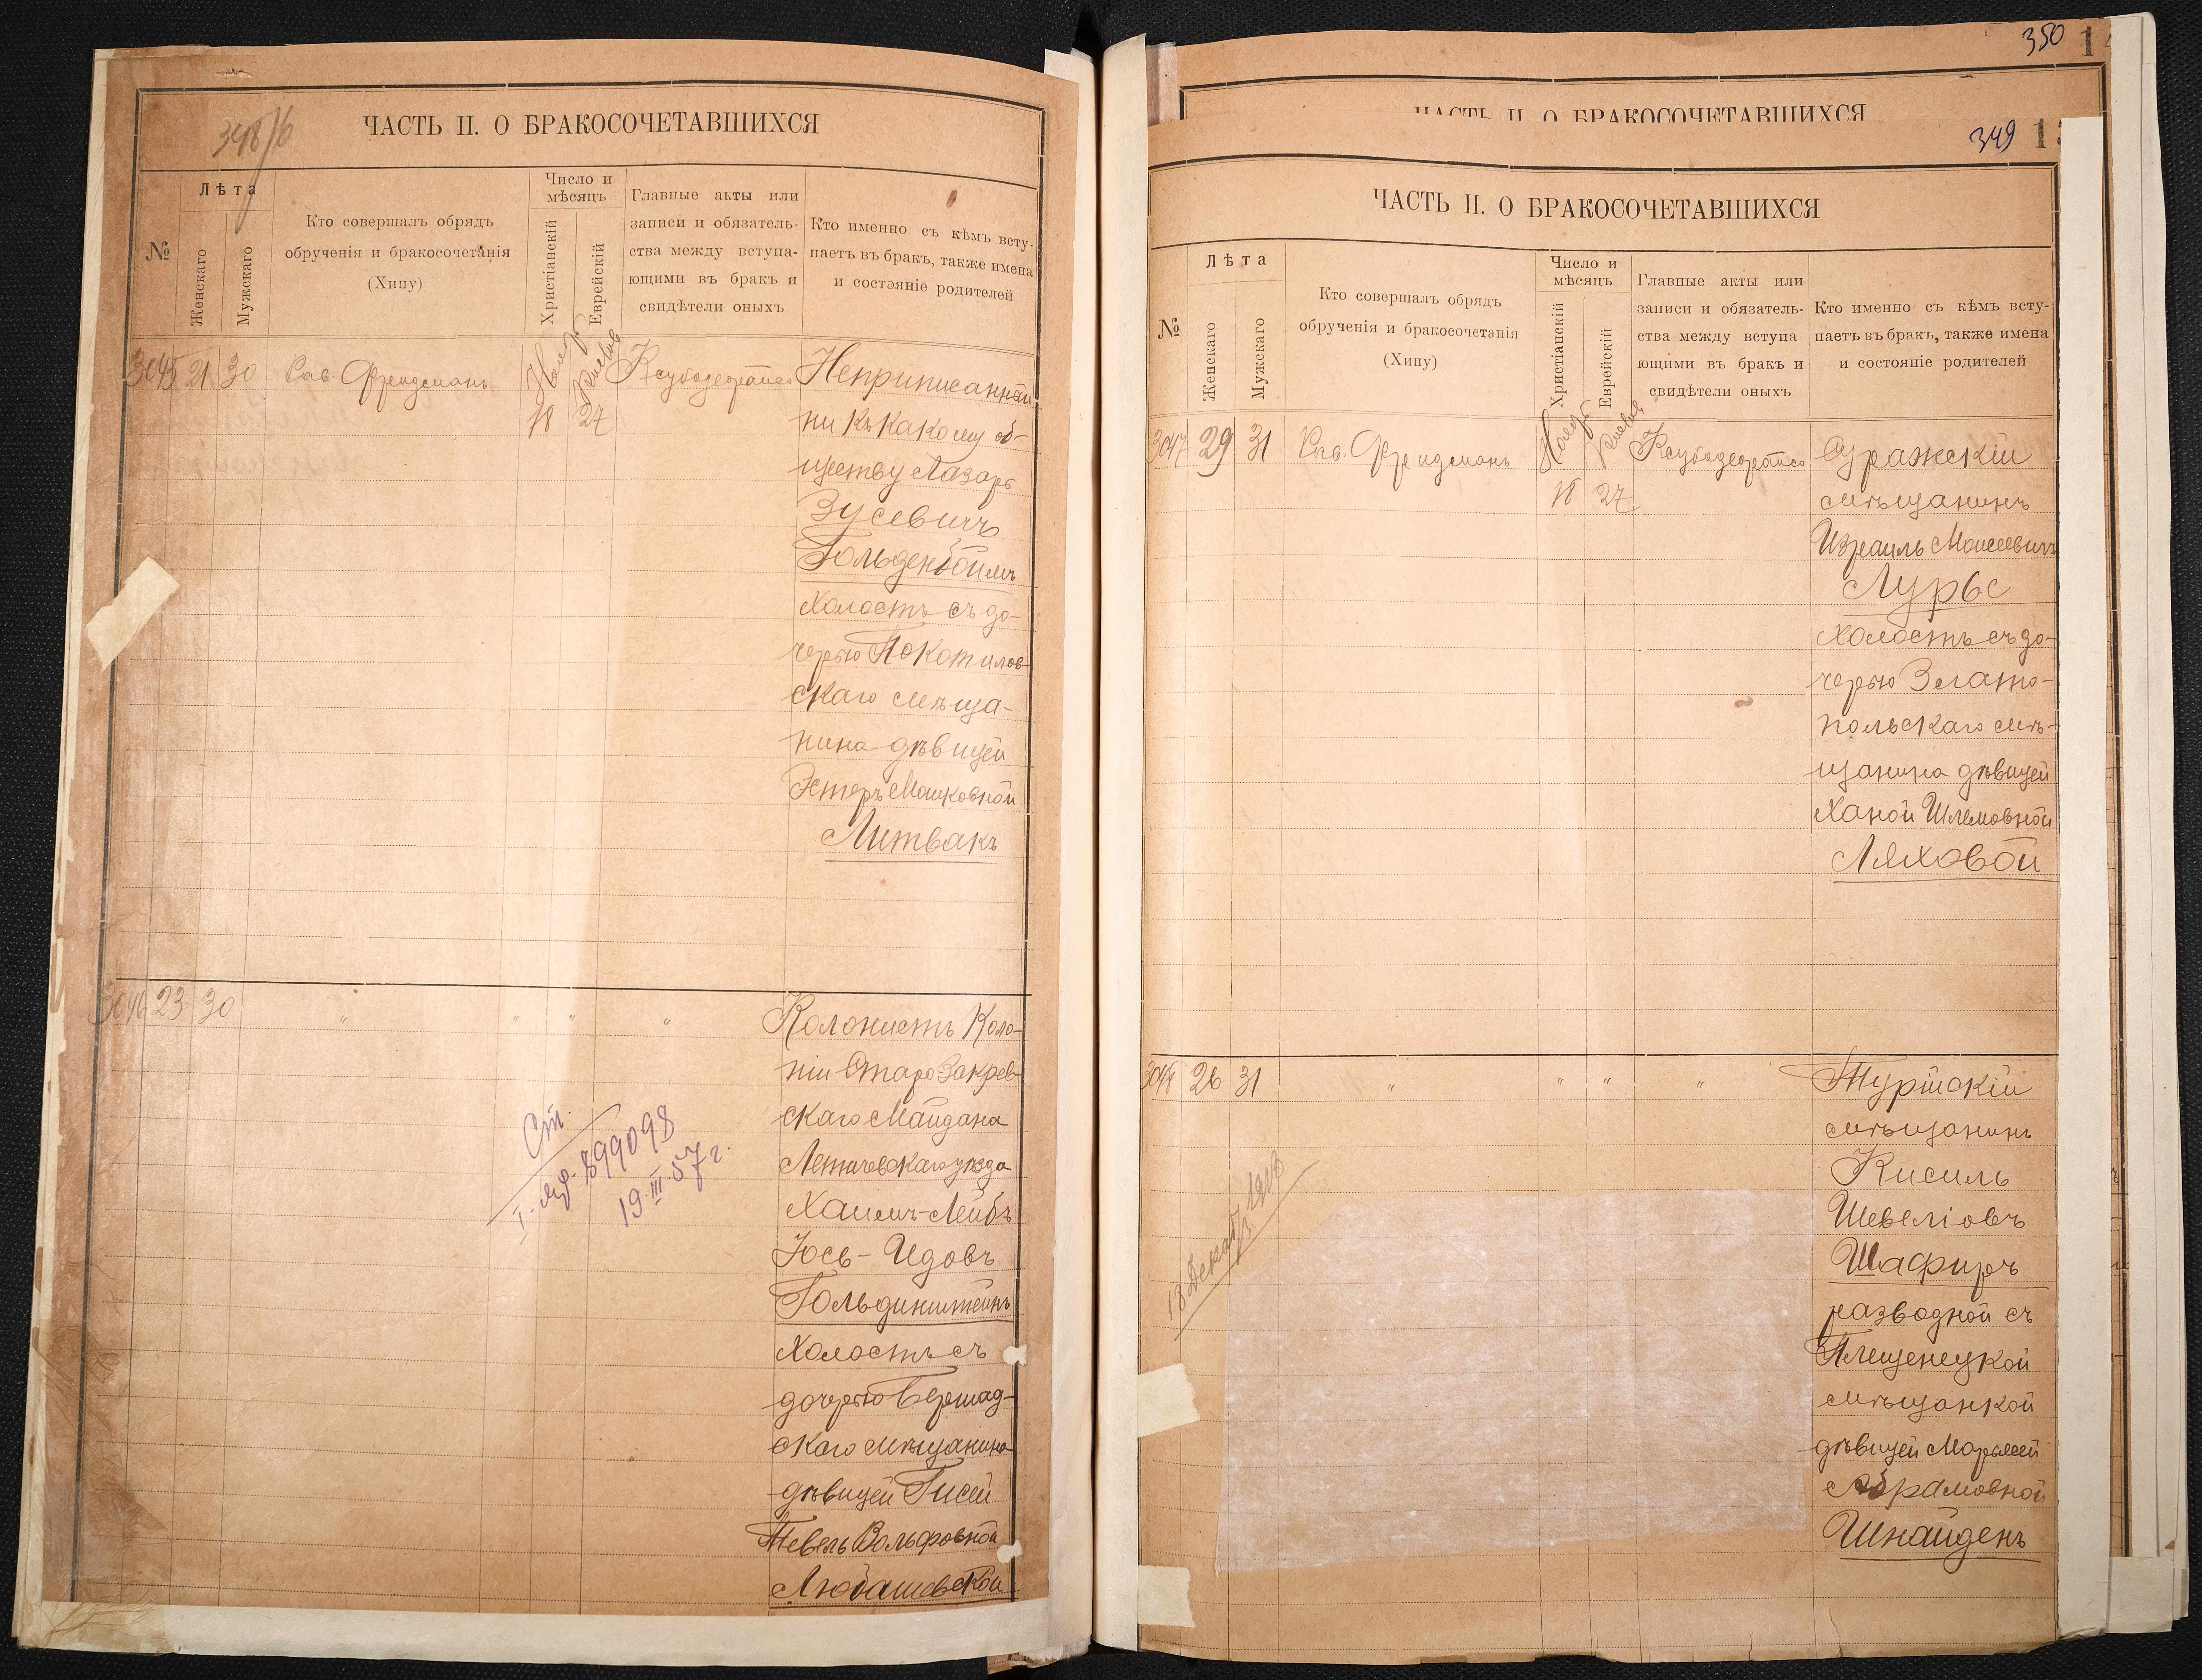 348/б
ЧАСТЬ II. О БРАКОСОЧЕТАВШИХСЯ
№
Лѣта
Женскаго
Мужскаго
Кто совершалъ обрядъ
обрученія и бракосочетанія
(Хипу)
Число и
мѣсяцъ
Христіанскій
Еврейскій
Главные акты или
записи и обязатель-
ства между вступа-
ющими въ бракъ и
свидѣтели оныхъ
Кто именно съ кѣмъ всту-
паетъ въ бракъ, также имена
и состояніе родителей
3045 21 30 Рав. Фридманъ Ноябр Кислев
18 24
Неприписанный
ни къ какому об-
ществу Лазарь
Зусевичъ
Гольденбоймъ
холостъ съ до-
черью Покотилов-
скаго мѣща-
нина дѣвицей
Эстеръ Мошковной
Литвакъ
3046 23 30 " " " "
Колонистъ коло-
ніи Старо Закрев-
скаго Майдана
Летичевскаго уѣзда
Хаимъ-Лейбъ
Юсь-Идовъ
Гольдинштейнъ
холостъ съ
дочерью Бершад-
скаго мѣщанина
дѣвицей Гисей
Тевель Вольфовной
Любашевской
899098
19.III.57г.
350
ЧАСТЬ II. О БРАКОСОЧЕТАВШИХСЯ
349
ЧАСТЬ II. О БРАКОСОЧЕТАВШИХСЯ
№
Лѣта
Женскаго
Мужскаго
Кто совершалъ обрядъ
обрученія и бракосочетанія
(Хипу)
Число и
мѣсяцъ
Христіанскій
Еврейскій
Главные акты или
записи и обязатель-
ства между вступа
ющими въ бракъ и
свидѣтели оныхъ
Кто именно съ кѣмъ всту-
паетъ въ бракъ, также имена
и состояніе родителей
3047 29 31 Рав. Фридманъ Ноябр Кислев
18 24
Суражскій
мѣщанинъ
Израиль Моисеевичъ
Лурье
холостъ съ до-
черью Злато-
польскаго мѣ-
щанина дѣвицей
Ханой Шлемовной
Ляховой
3048 26 31 " " " "
Турійскій
мѣщанинъ
Кисиль
Шевеліовъ
Шафиръ
разводной съ
Плещенецкой
мѣщанкой
дѣвицей Марьясей
Абрамовной
Шнайденъ